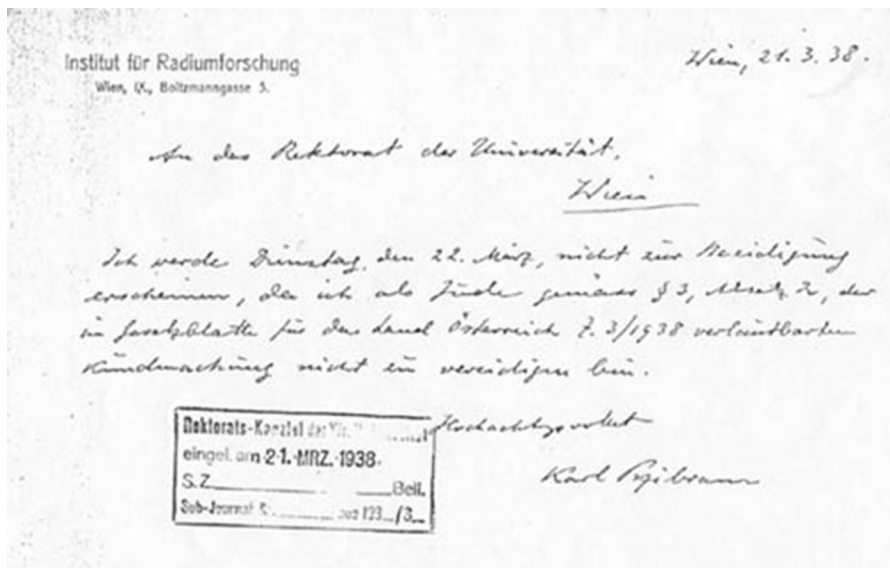 Institut für Radiumforschung
Wien, IX., Boltzmanngasse 3.
Wien, 21. 3. 38.
An das Rektorat der Universität,
Wien
Ich werde Dienstag, den 22. März, nicht zur Beeidigung
erscheinen, da ich als Jude gemäss § 3, Absatz 2, der
im Gesetzblatte für das Land Österreich Z. 3/1938 verlautbarten
Kundmachung nicht zu vereidigen bin.
Hochachtungsvollst
Karl Przibram
Rektorats-Kanzlei der
eingel. am 21. MRZ. 1938
S. Z. Beil.
Sub-Journal aus 193 /3